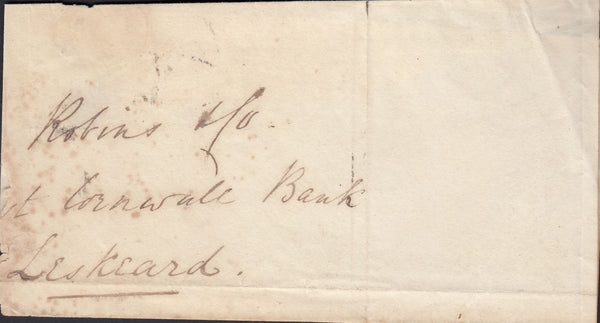 Robins & Co
st Cornwall Bank
Leskeard.